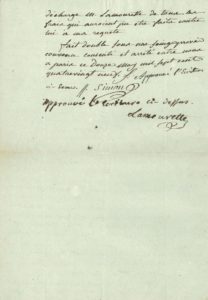 décharge M. Lamourette de tous les
frais qui auroient pu être faits contre
lui a ma requete
fait double sous nos
convenu consenti et arreté entre nous
a paris ce douze may mil sept cent
quatrevingt neuf. Approuvé l'écriture
Simon
approuvé l'écriture ci dessus
Lamourette